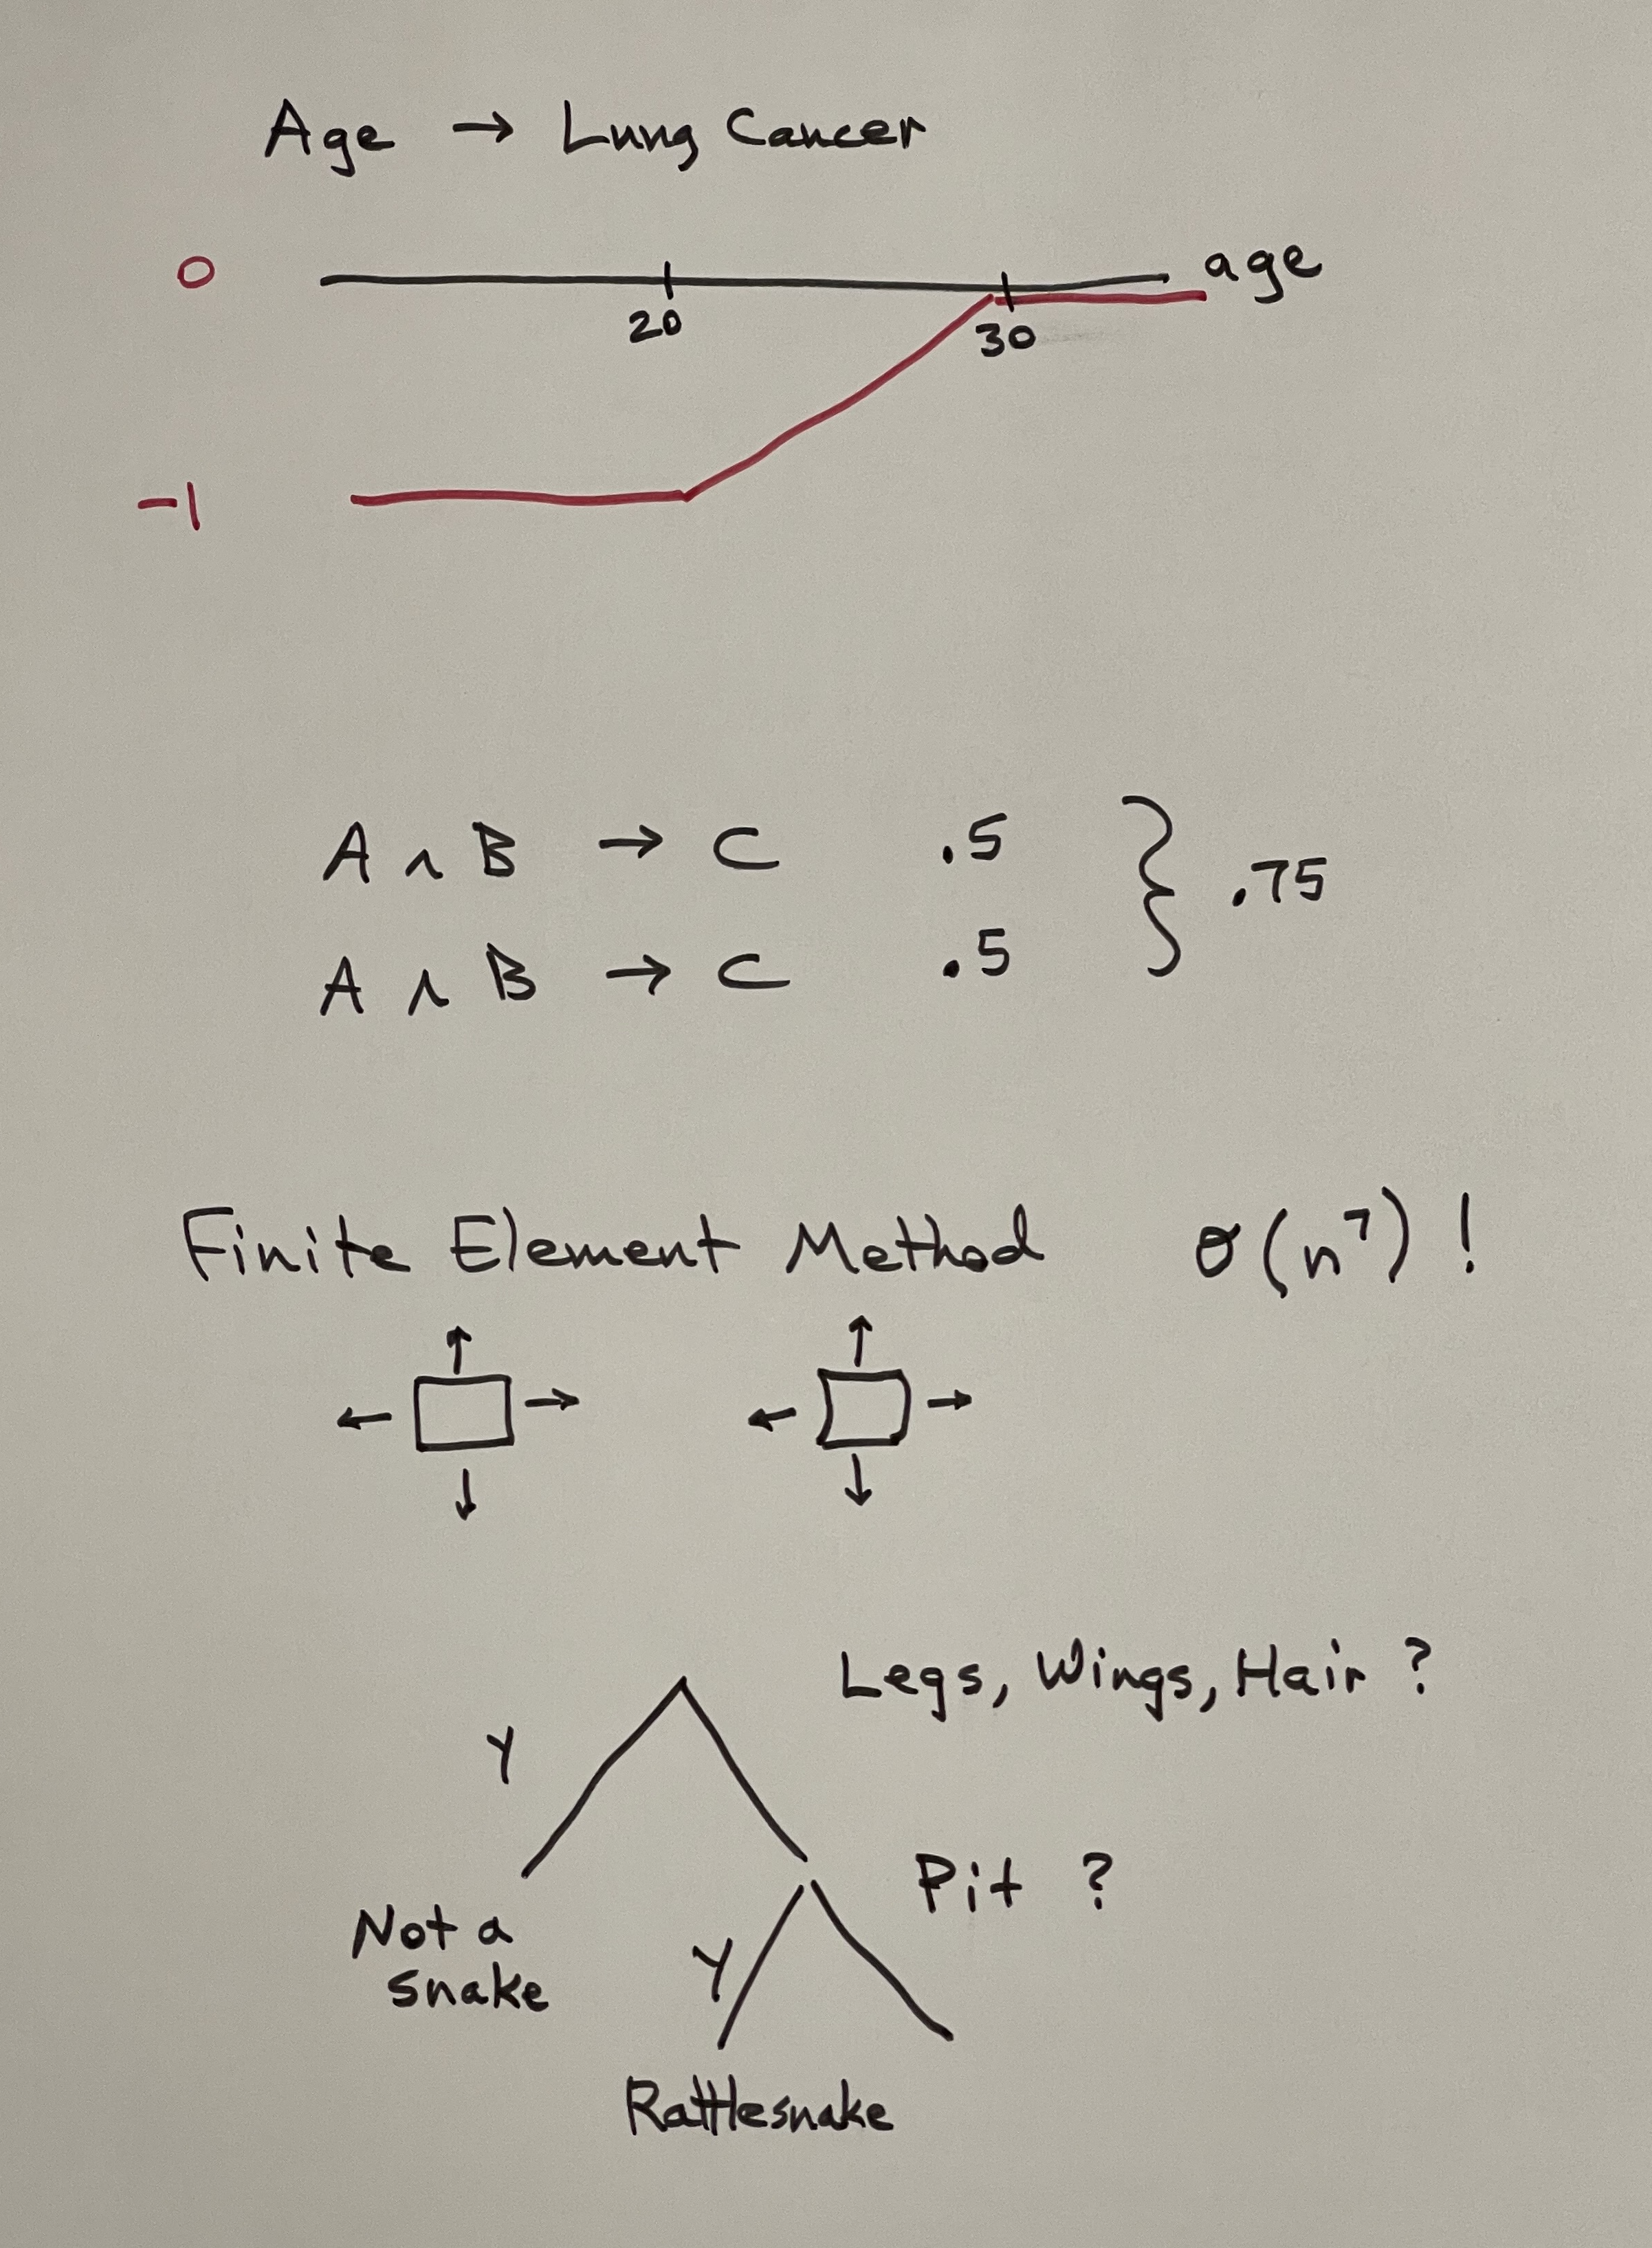 Age → Lung Cancer
0
age
20
30
-1
A ∧ B → C .5
A ∧ B → C .5
} .75
Finite Element Method O(n⁷)!
Legs, Wings, Hair ?
Y
Pit ?
Not a
snake
Y
Rattlesnake